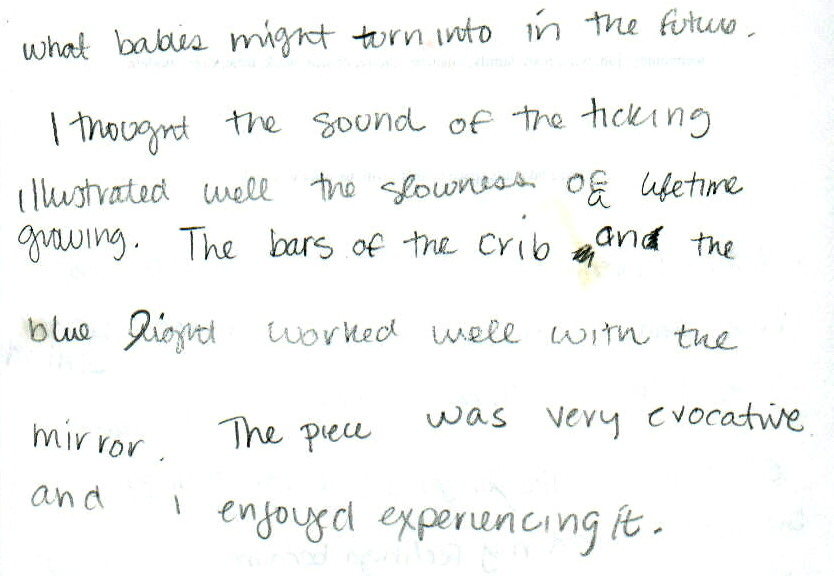 what babies might turn into in the future.
I thought the sound of the ticking
illustrated well the slowness of a lifetime
growing. The bars of the crib and the
blue light worked well with the
mirror. The piece was very evocative
and i enjoyed experiencing it.